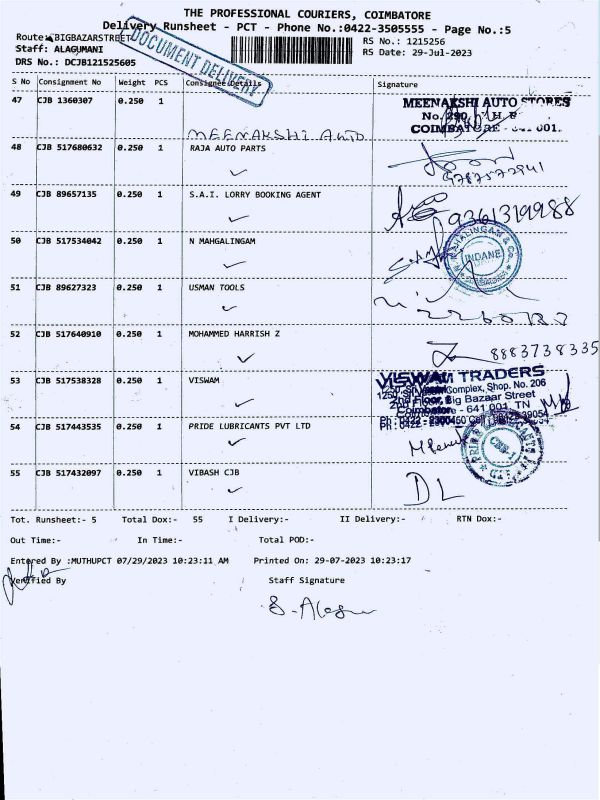 THE PROFESSIONAL COURIERS, COIMBATORE
Delivery Runsheet - PCT - Phone No.:0422-3505555 - Page No.:5
Route: BIGBAZARSTREET
DOCUMENT DELIVERY
RS No.: 1215256
Staff: ALAGUMANI
RS Date: 29-Jul-2023
DRS No.: DCJB121525605
S No Consignment No Weight PCS Consignee Details Signature
47 CJB 1360307 0.250 1
MEENAKSHI AUTO STORES
No. 290,
COIMBATORE - 641 001.
MEENAKSHI AUTO
48 CJB 517680632 0.250 1 RAJA AUTO PARTS
49 CJB 89657135 0.250 1 S.A.I. LORRY BOOKING AGENT
9361319988
50 CJB 517534042 0.250 1 N MAHGALINGAM
INDANE
51 CJB 89627323 0.250 1 USMAN TOOLS
52 CJB 517640910 0.250 1 MOHAMMED HARRISH Z
8883738335
53 CJB 517538328 0.250 1 VISWAM
VISWAM TRADERS
Complex, Shop. No. 206
2nd Floor, Big Bazaar Street
Coimbatore - 641 001, TN
54 CJB 517443535 0.250 1 PRIDE LUBRICANTS PVT LTD
CBE-1
55 CJB 517432097 0.250 1 VIBASH CJB
DL
Tot. Runsheet:- 5 Total Dox:- 55 I Delivery:- II Delivery:- RTN Dox:-
Out Time:- In Time:- Total POD:-
Entered By :MUTHUPCT 07/29/2023 10:23:11 AM Printed On: 29-07-2023 10:23:17
Verified By Staff Signature